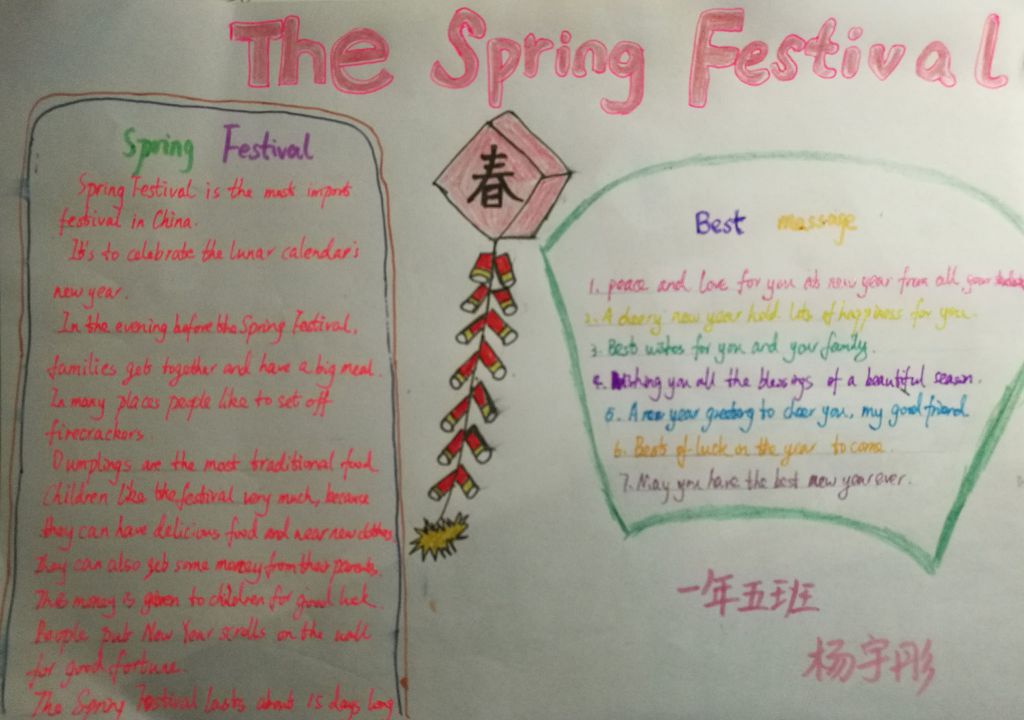 The Spring Festival
Spring Festival
Spring Festival is the most import
festival in China.
It's to celebrate the lunar calendar's
new year.
In the evening before the Spring Festival,
families get together and have a big meal.
In many places people like to set off
firecrackers.
Dumplings are the most traditional food.
Children like the festival very much, because
they can have delicious food and wear new clothes.
They can also get some money from their parents.
This money is given to children for good luck.
People put New Year scrolls on the wall
for good fortune.
The Spring Festival lasts about 15 days long
春
Best massage
1. peace and love for you at new year from all your
2. A cheery new year hold lots of happiness for you.
3. Best wishes for you and your family.
4. Wishing you all the blessings of a beautiful season.
5. A new year greeting to cheer you, my good friend
6. Bests of luck in the year to come.
7. May you have the best new year ever.
一年五班
杨宇彤